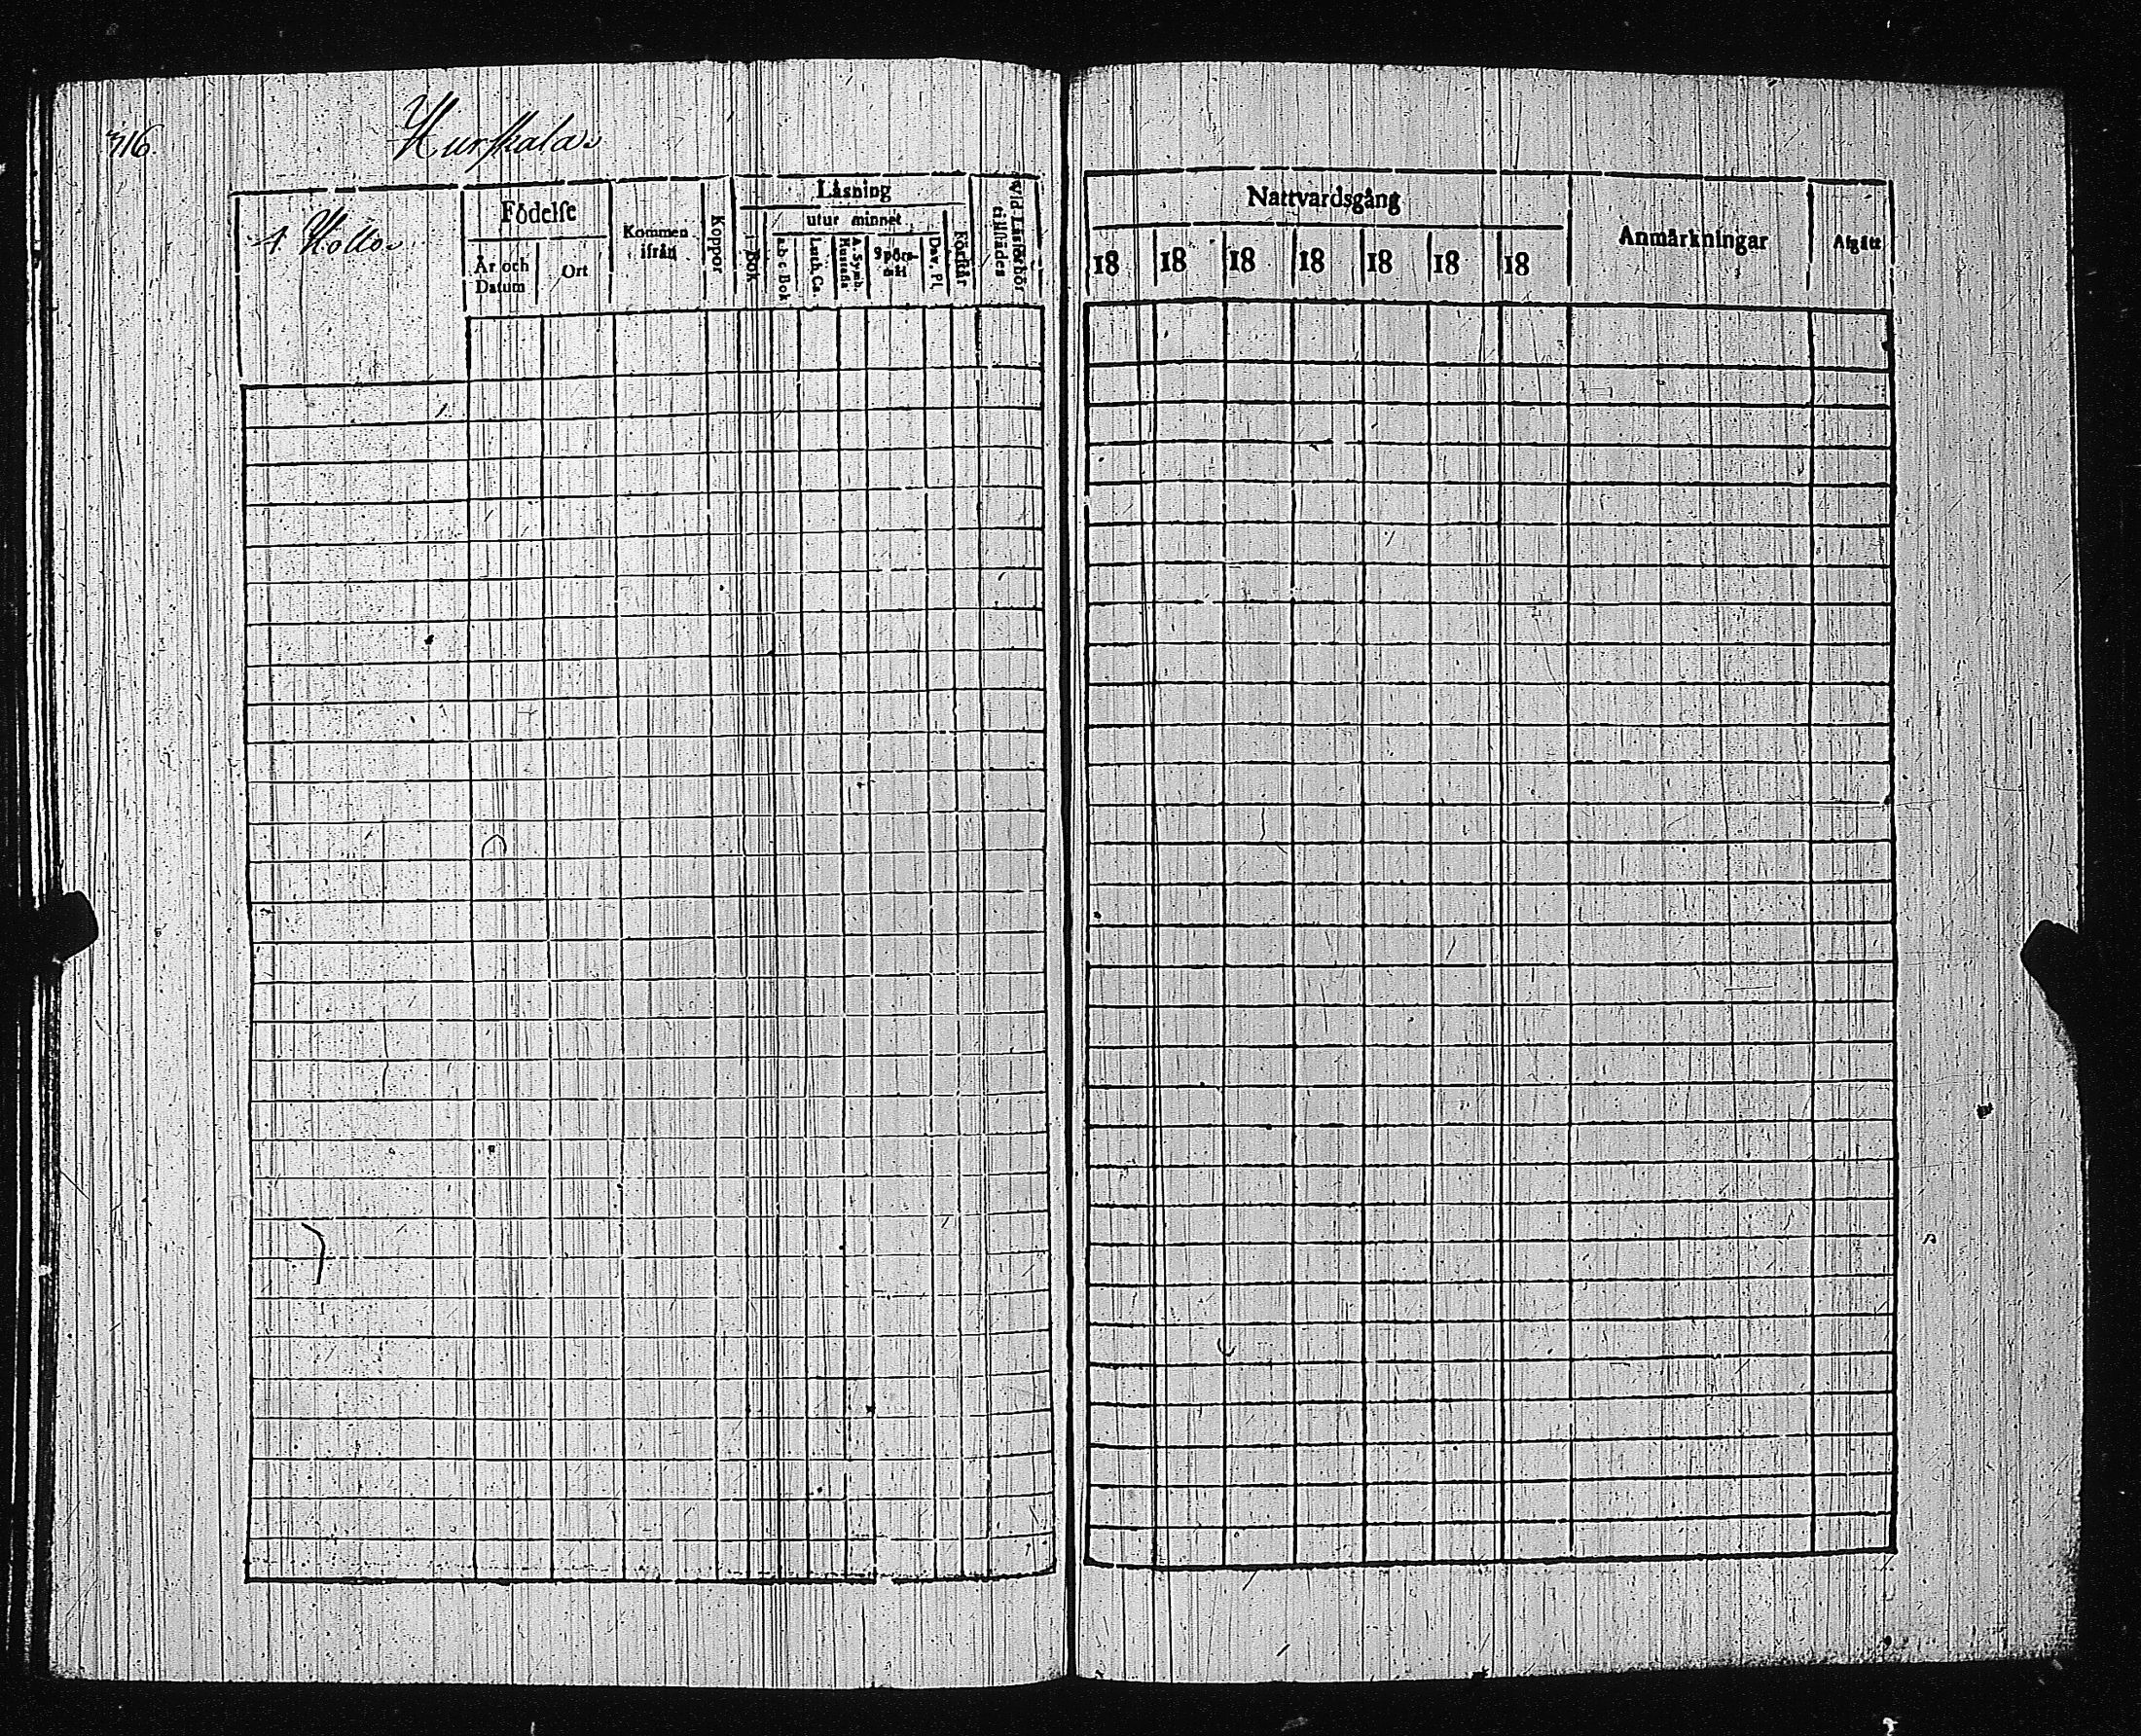 316.
Hurskala
1. Hollo
Födelse
År och Datum
Ort
Kommen ifrån
Koppor
Läsning
i Bok
utur minnet
ab c Bok
Luth. Ca.
A. Symb. Hustafla
Spörsmål
Dav. Ps.
Förstår
Vid Läsförhör tillstädes
Nattvardsgång
18 18 18 18 18 18 18
Anmärkningar
Afgått